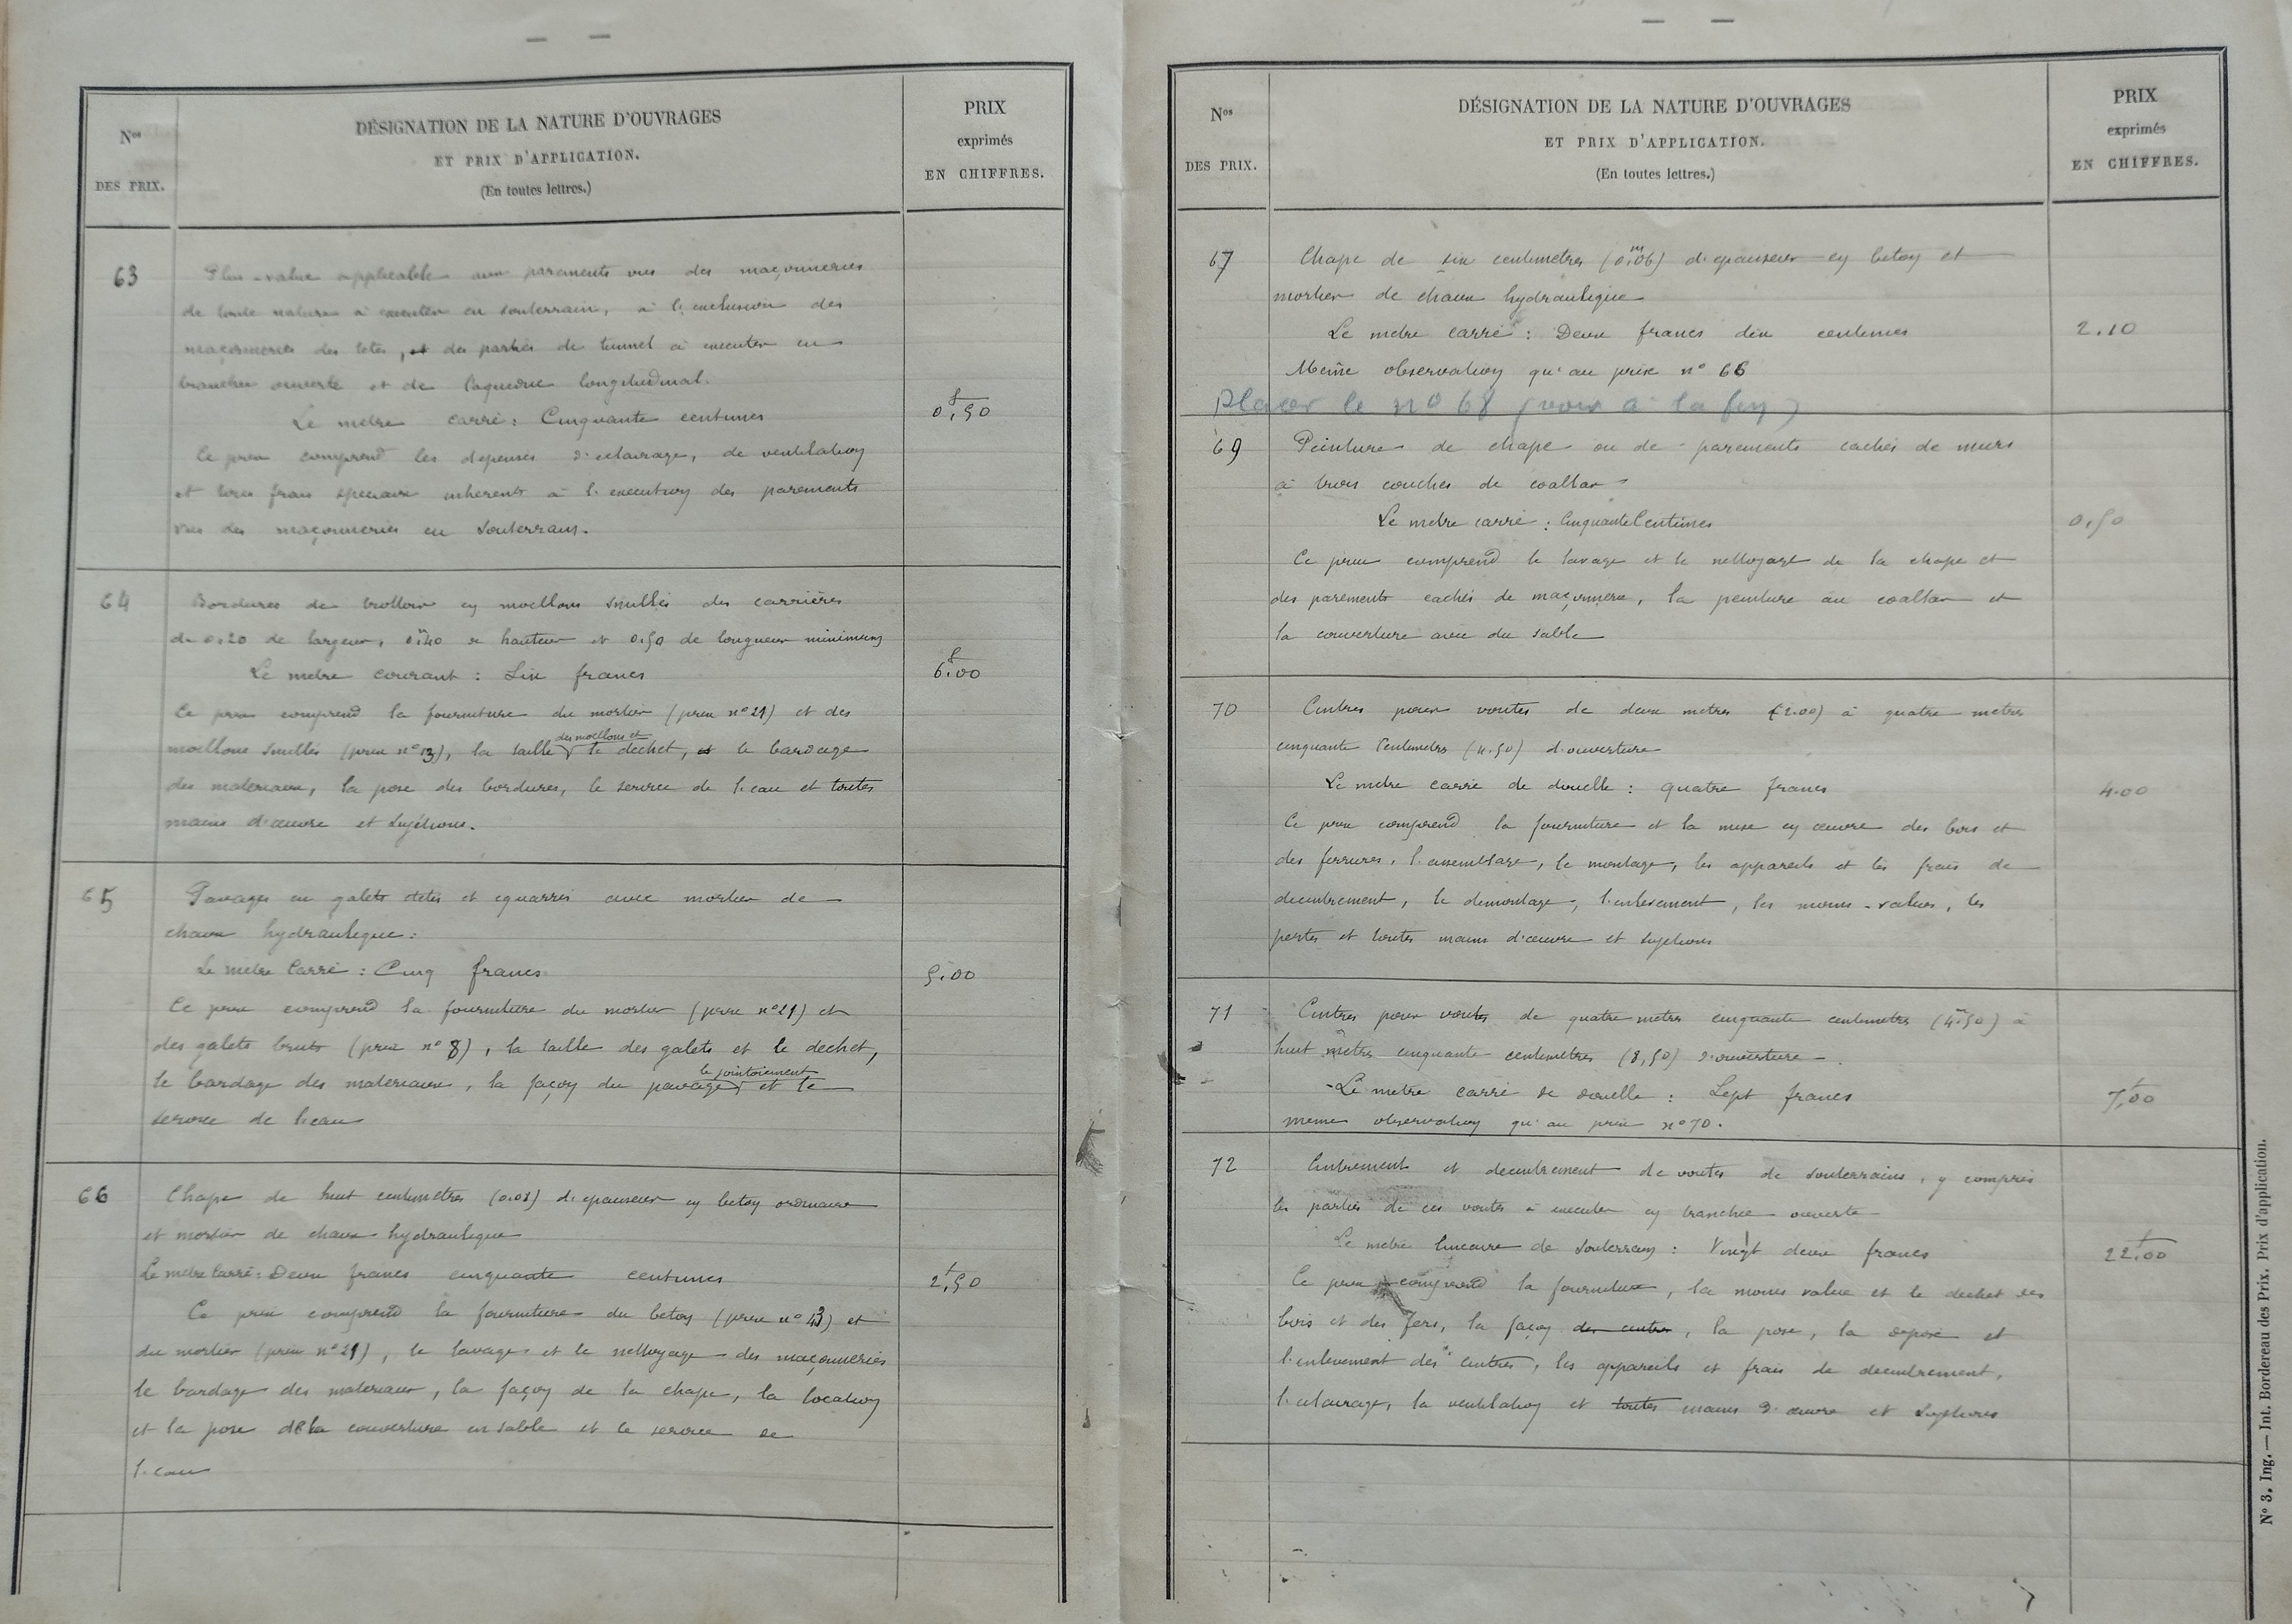 Nos
DES PRIX.
DÉSIGNATION DE LA NATURE D'OUVRAGES
ET PRIX D'APPLICATION.
(En toutes lettres.)
PRIX
exprimés
EN CHIFFRES.
63
Plus-value applicable aux parements vus des maçonneries
de toute nature à executer en souterrain, à l'exclusion des
maçonneries des tetes, et des parties de tunnel à executer en
tranchée ouverte et de l'aqueduc longitudinal.
Le metre carré : Cinquante centimes
0f,50
Ce prix comprend les depenses d'eclairage, de ventilation
et tous frais speciaux inherents à l'execution des parements
vus des maçonneries en souterrain.
64
Bordures de trottoir en moellons smillés des carrières
de 0.20 de largeur, 0m40 de hauteur et 0.50 de longueur minimum
Le metre courant : Six francs
6f00
Ce prix comprend la fourniture du mortier (prix n°21) et des
moellons smillés (prix n°13), la taille des moellons et le dechet, et le bardage
des materiaux, la pose des bordures, le service de l'eau et toutes
mains d'œuvre et sujétions.
65
Pavages en galets etetés et equarris avec mortier de
chaux hydraulique :
Le metre Carré : Cinq francs
5.00
Ce prix comprend la fourniture du mortier (prix n°21) et
des galets bruts (prix n° 8), la taille des galets et le dechet,
le bardage des materiaux, la façon du pavage, le jointoiement et le
service de l'eau
66
Chape de huit centimètres (0.08) d'epaisseur en beton ordinaire
et mortier de chaux hydraulique
Le metre Carré : Deux francs cinquante centimes
2f,50
Ce prix comprend la fourniture du beton (prix n° 43) et
du mortier (prix n°21), le lavage et le nettoyage des maçonneries
le bardage des materiaux, la façon de la chape, la location
et la pose de la couverture en sable et le service de
l'eau
Nos
DES PRIX.
DÉSIGNATION DE LA NATURE D'OUVRAGES
ET PRIX D'APPLICATION.
(En toutes lettres.)
PRIX
exprimés
EN CHIFFRES.
67
Chape de six centimetres (0m06) d'epaisseur en beton et
mortier de chaux hydraulique
Le metre carré : Deux francs dix centimes
2.10
Même observation qu'au prix n° 66
Placer le n° 68 (voir à la fin)
69
Peinture de chape ou de parements cachés de murs
à trois couches de coaltar
Le metre carré : Cinquante Centimes
0,50
Ce prix comprend le lavage et le nettoyage de la chape et
des parements cachés de maçonnerie, la peinture au coaltar et
la couverture avec du sable
70
Cintres pour voutes de deux metres (2.00) à quatre metres
cinquante Centimetres (4.50) d'ouverture
Le metre carré de douelle : quatre francs
4.00
Ce prix comprend la fourniture et la mise en œuvre des bois et
des ferrures, l'assemblage, le montage, les appareils et les frais de
decintrement, le demontage, l'enlevement, les moins-values, les
pertes et toutes mains d'œuvre et sujetions
71
Cintres pour voutes de quatre metres cinquante centimetres (4m50) à
huit mètres cinquante centimètres (8,50) d'ouverture
Le metre carré de douelle : Sept francs
7f,00
meme observation qu'au prix n°70.
72
Cintrement et decintrement de voutes de souterrains, y compris
les parties de ces voutes à executer en tranchée ouverte
Le metre lineaire de souterrain : Vingt deux francs
22f00
Ce prix comprend la fourniture, la moins value et le dechet des
bois et des fers, la façon des cintres, la pose, la depose et
l'enlevement des cintres, les appareils et frais de decintrement,
l'eclairage, la ventilation et toutes mains d'œuvre et sujetions
N° 3. Ing. — Int. Bordereau des Prix. Prix d'application.